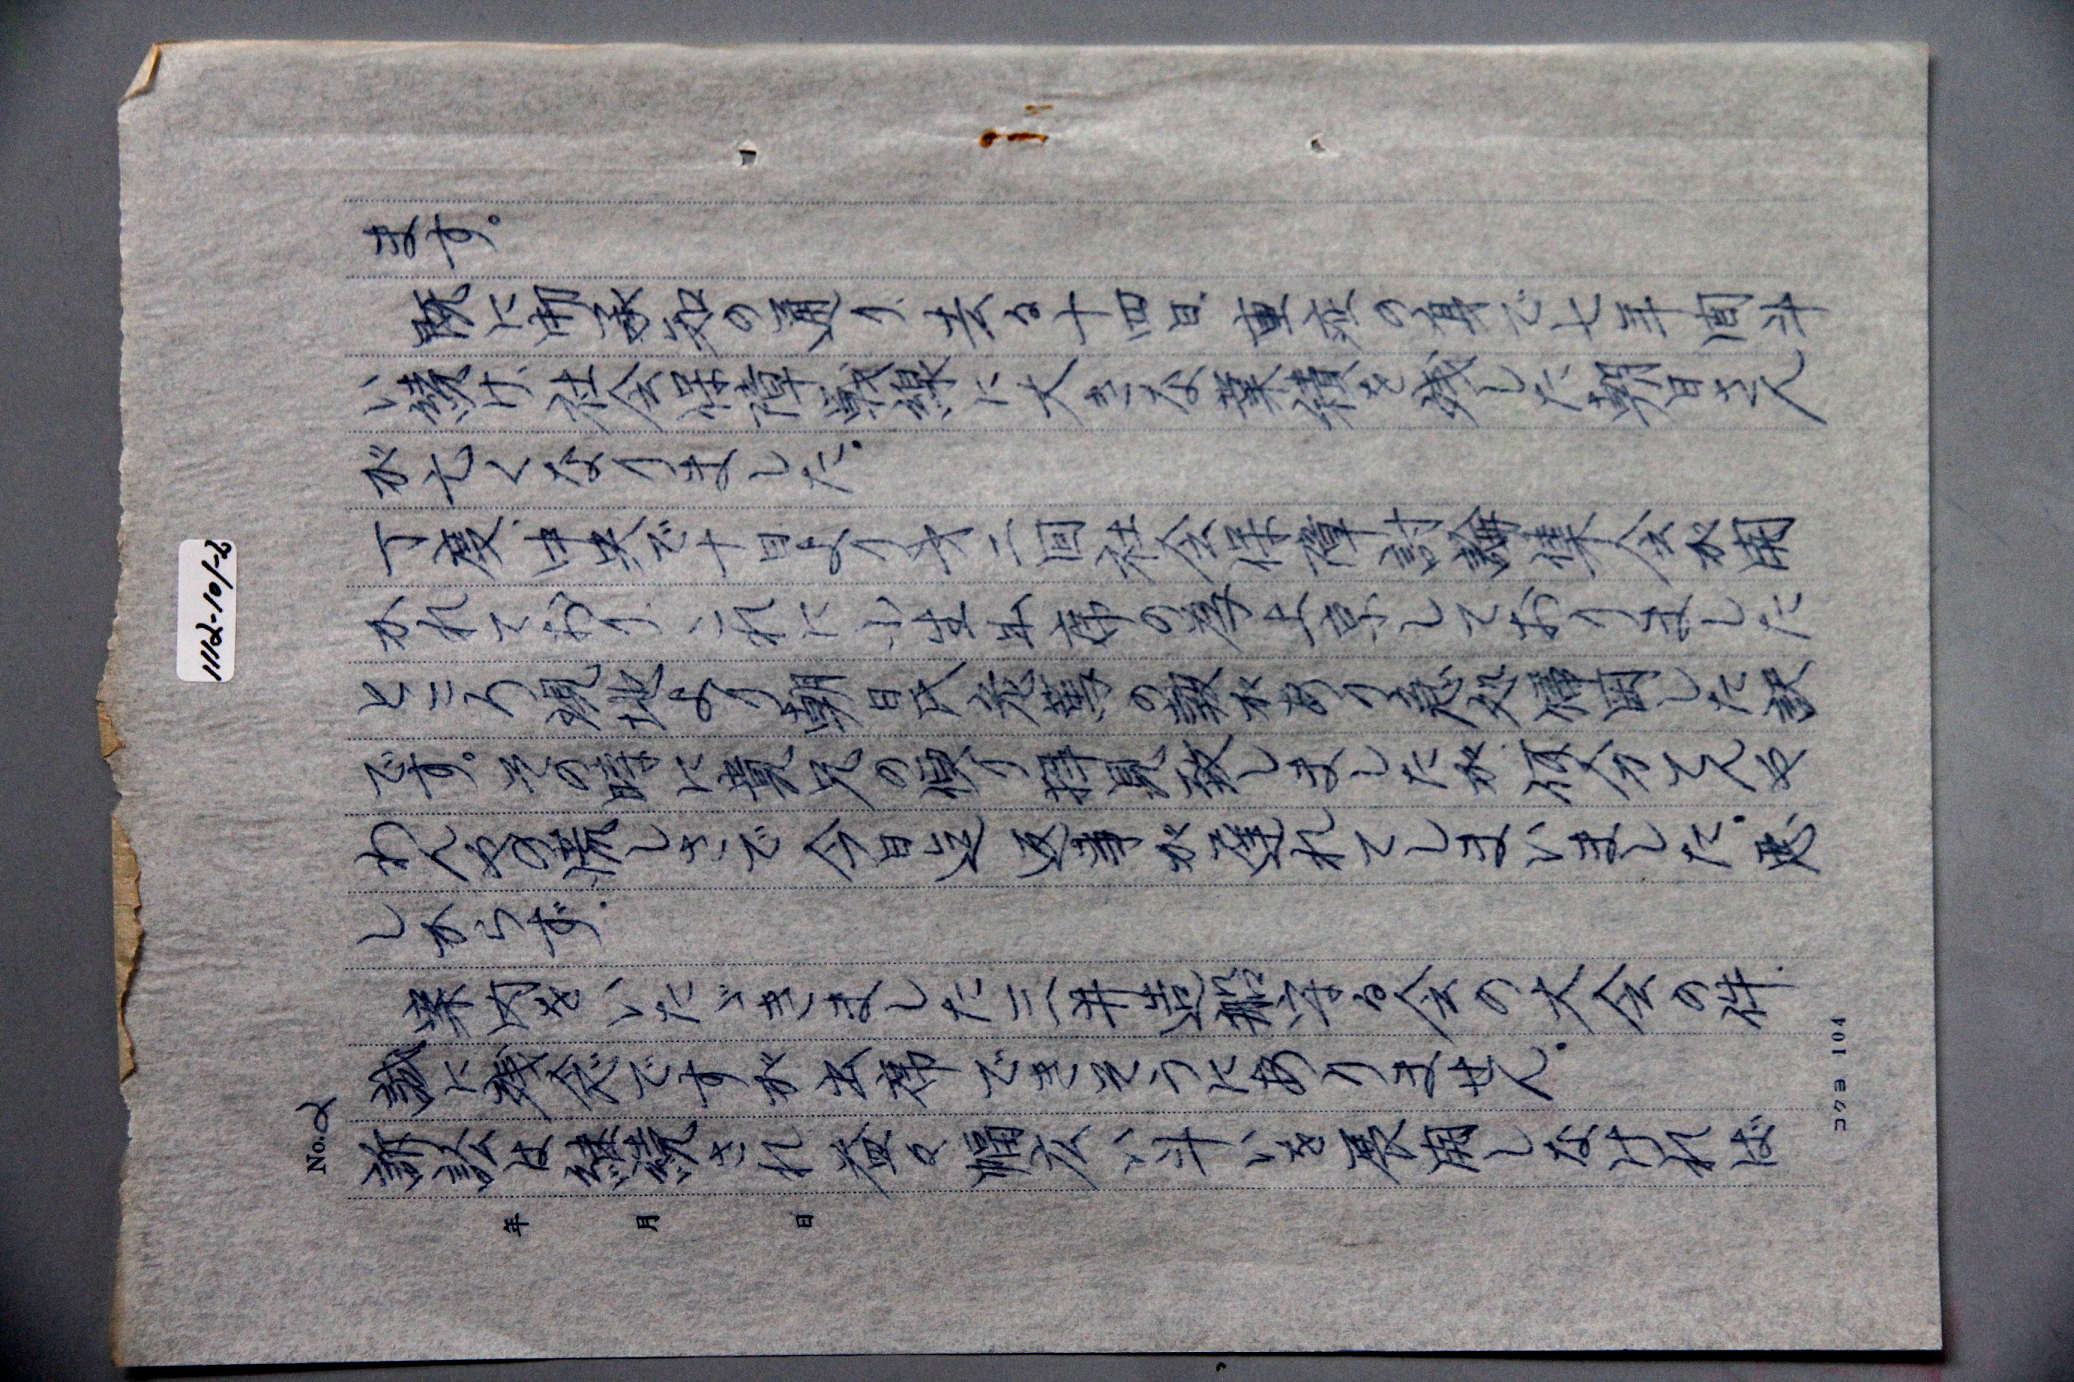 No. 2
年 月 日
ます。
既に御承知の通り、去る十四日、重症の身で七年間斗
い続け、社会保障戦線に大きな業績を残した朝日さん
が亡くなりました。
丁度、中央で十日より才二回社会保障討論集会が開
かれており、これに小生出席の為上京しておりました
ところ現地より朝日氏危篤の報があり急ぎ帰岡した訳
です。その時に貴兄の便り拝見致しましたが、何分てんや
わんやの慌しさで今日迄返事が遅れてしまいました。悪
しからず.
案内をいただきました三井 守る会の大会の件.
誠に残念ですが出席できそうにありません。
訴訟は継続され益々幅広い斗いを展開しなければ
コクヨ 104
1112-101-2